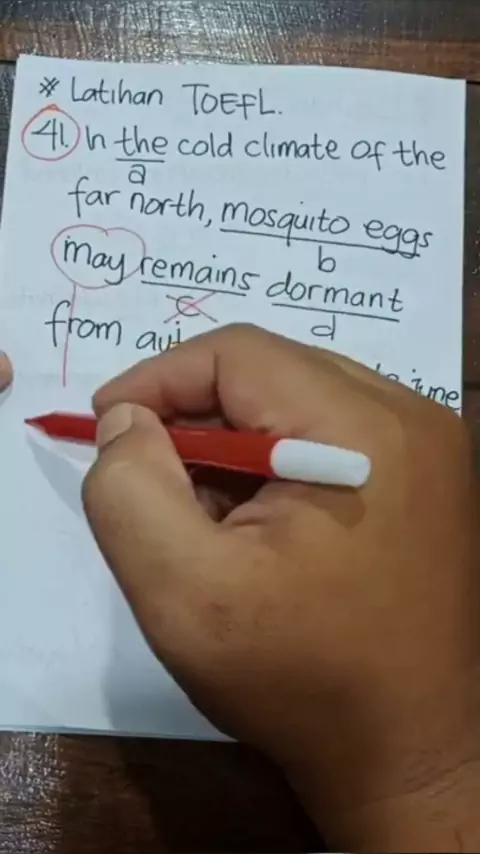 * Latihan TOEFL.
41. In the cold climate of the
a
far north, mosquito eggs
b
may remains dormant
c d
from
june